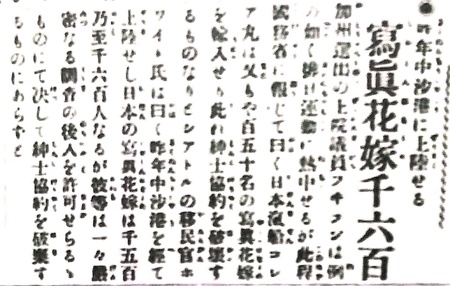 ●昨年中沙港に上陸せる
寫眞花嫁千六百
加州選出の上院議員フキランは例
の如く排日運動に熱中せるが此程
國務省に報じて曰く日本滊船コレ
ア丸は又もや百五十名の寫眞花嫁
を輸入せり此れ紳士協約を破壊す
るものなりとシアトルの移民官ホ
ワイト氏は曰く昨年中沙港を經て
上陸せし日本の寫眞花嫁は千五百
乃至千六百人なるが彼等は一々嚴
密なる調査の後入を許可せらるゝ
ものにて决して紳士協約を破棄す
ちものにあらずと